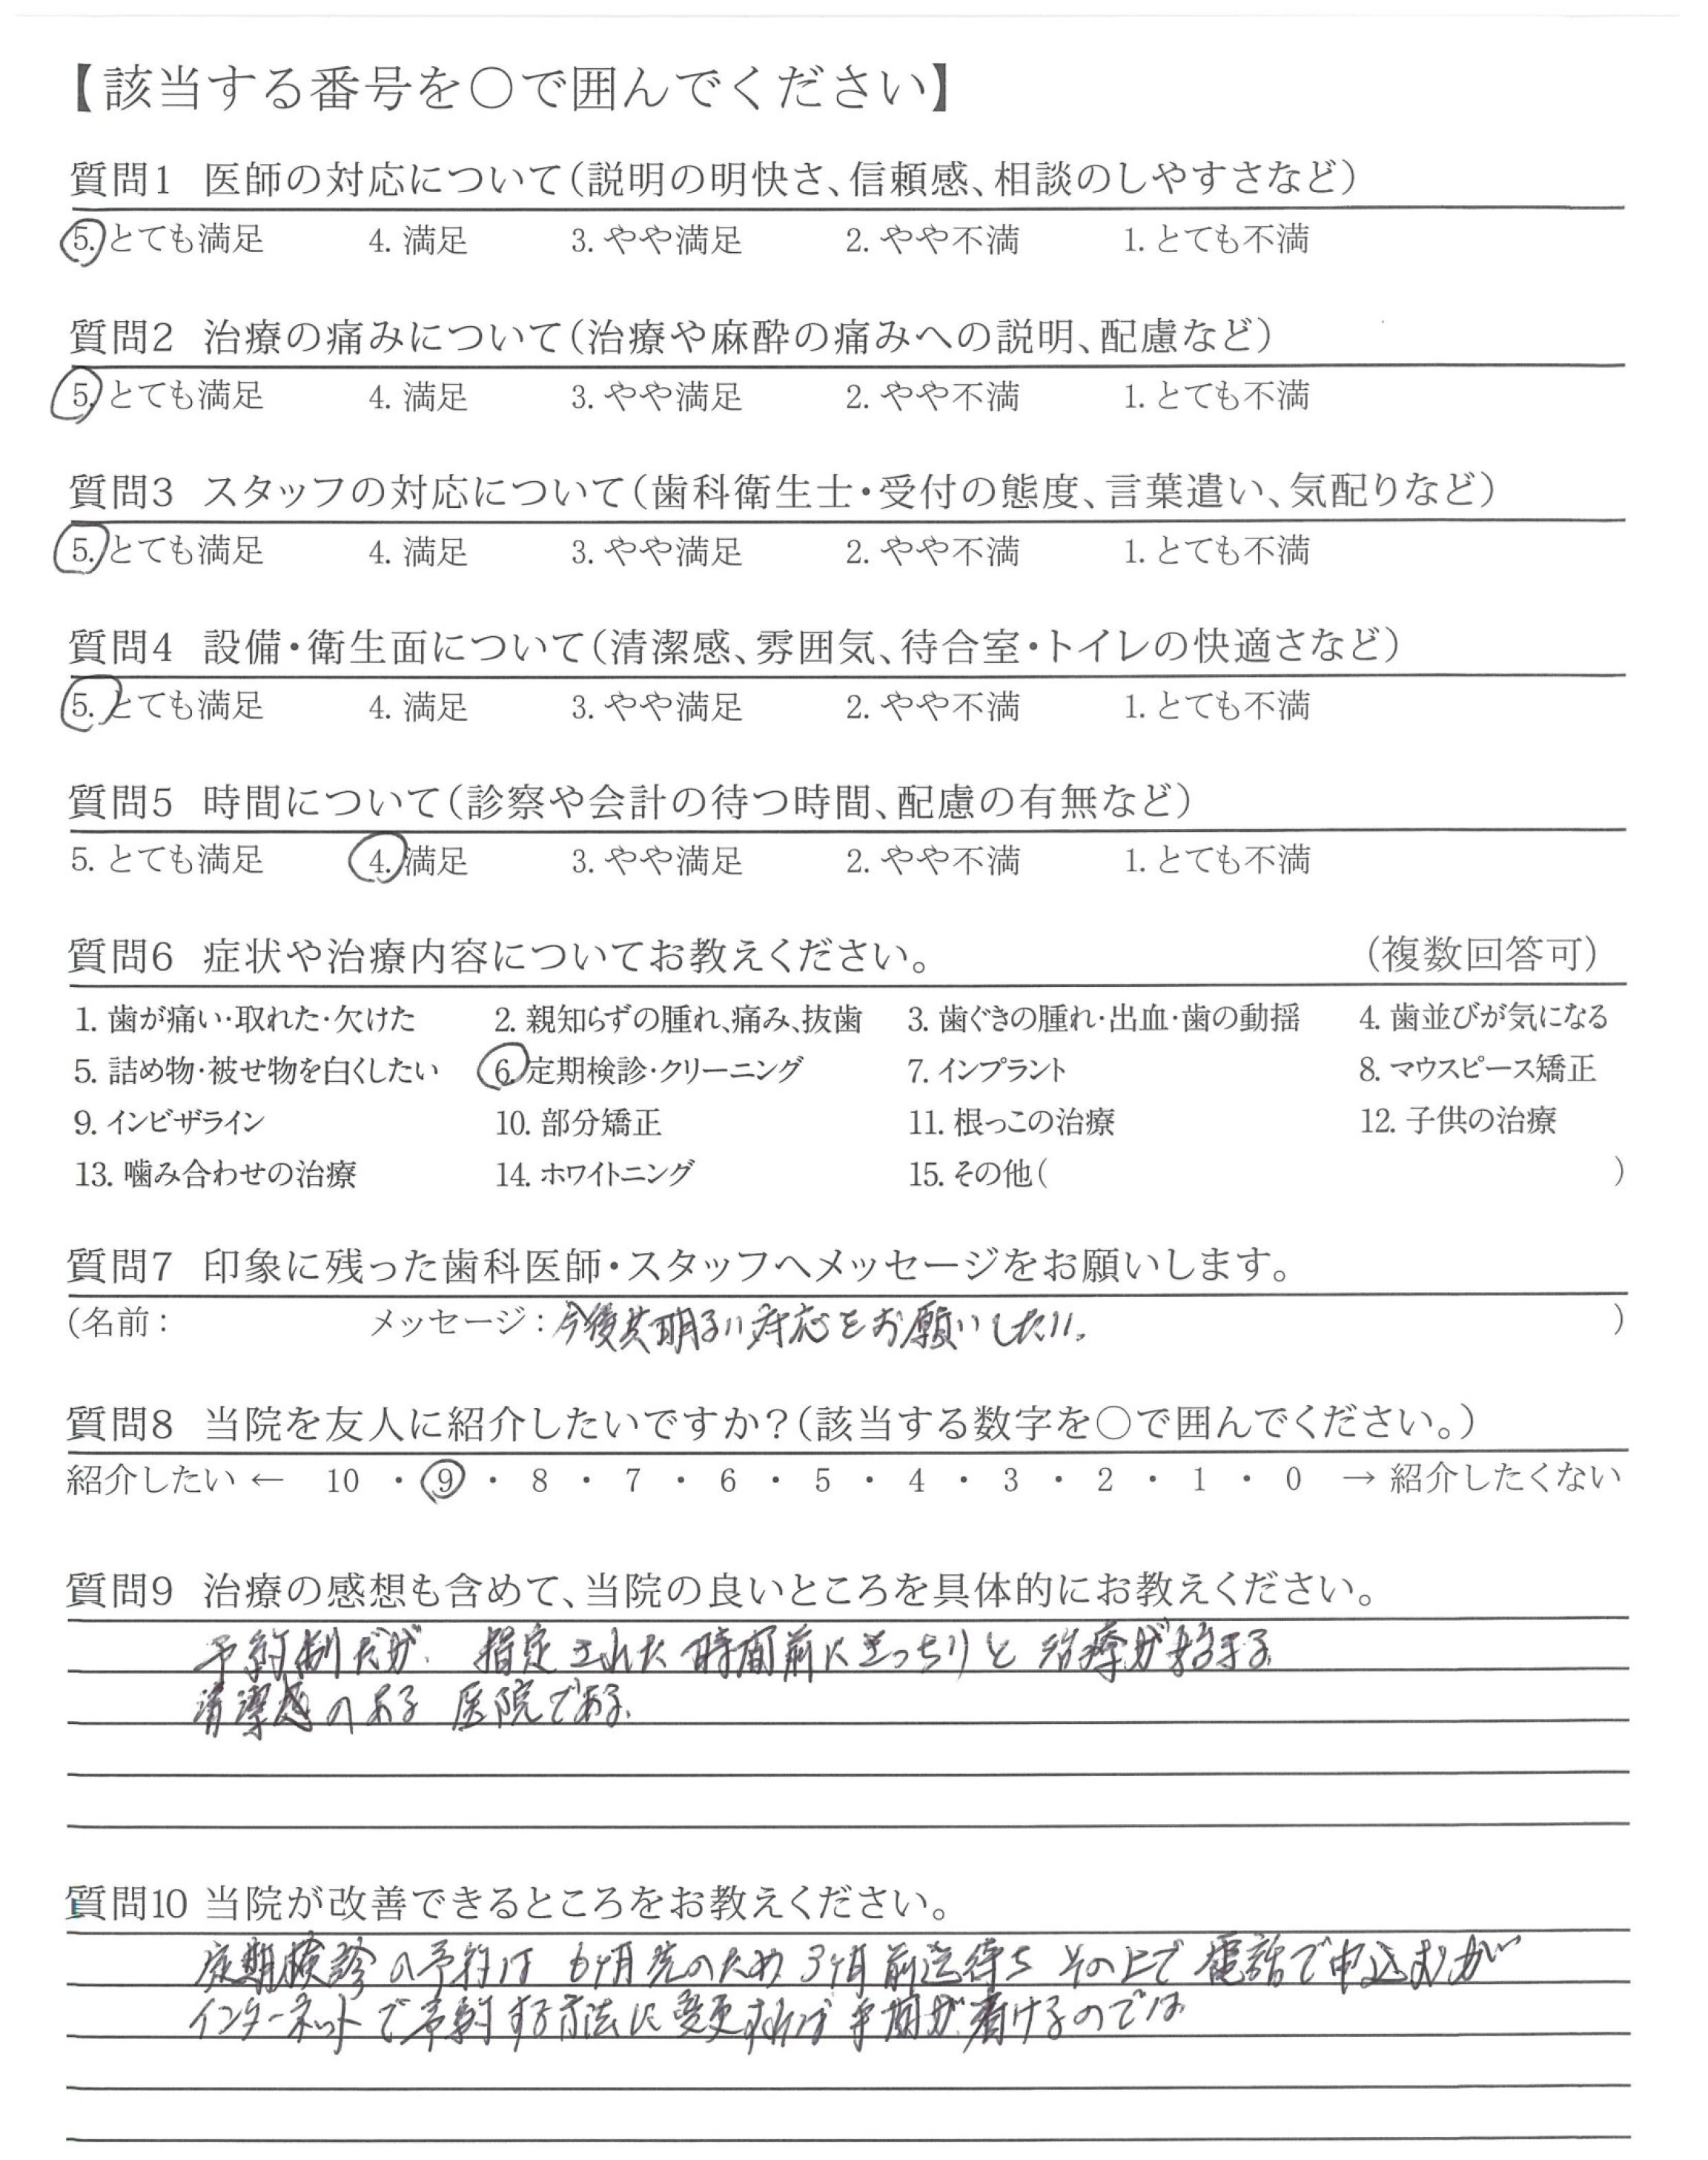 【該当する番号を〇で囲んでください】
質問1 医師の対応について(説明の明快さ、信頼感、相談のしやすさなど)
5. とても満足 4. 満足 3. やや満足 2. やや不満 1. とても不満
質問2 治療の痛みについて(治療や麻酔の痛みへの説明、配慮など)
5. とても満足 4. 満足 3. やや満足 2. やや不満 1. とても不満
質問3 スタッフの対応について(歯科衛生士・受付の態度、言葉遣い、気配りなど)
5. とても満足 4. 満足 3. やや満足 2. やや不満 1. とても不満
質問4 設備・衛生面について(清潔感、雰囲気、待合室・トイレの快適さなど)
5. とても満足 4. 満足 3. やや満足 2. やや不満 1. とても不満
質問5 時間について(診察や会計の待つ時間、配慮の有無など)
5. とても満足 4. 満足 3. やや満足 2. やや不満 1. とても不満
質問6 症状や治療内容についてお教えください。 (複数回答可)
1. 歯が痛い・取れた・欠けた 2. 親知らずの腫れ、痛み、抜歯 3. 歯ぐきの腫れ・出血・歯の動揺 4. 歯並びが気になる
5. 詰め物・被せ物を白くしたい 6. 定期検診・クリーニング 7. インプラント 8. マウスピース矯正
9. インビザライン 10. 部分矯正 11. 根っこの治療 12. 子供の治療
13. 噛み合わせの治療 14. ホワイトニング 15. その他( )
質問7 印象に残った歯科医師・スタッフへメッセージをお願いします。
(名前: メッセージ:今後共明るい対応をお願いしたい。 )
質問8 当院を友人に紹介したいですか?(該当する数字を〇で囲んでください。)
紹介したい ← 10 ・ 9 ・ 8 ・ 7 ・ 6 ・ 5 ・ 4 ・ 3 ・ 2 ・ 1 ・ 0 → 紹介したくない
質問9 治療の感想も含めて、当院の良いところを具体的にお教えください。
予約制だが、指定された時間前にきっちりと治療が始まる
清潔感のある医院である
質問10 当院が改善できるところをお教えください。
定期検診の予約は6ヶ月先のため3ヶ月前迄待ちその上で電話で申込むが
インターネットで予約する方法に変更すれば手間が省けるのでは